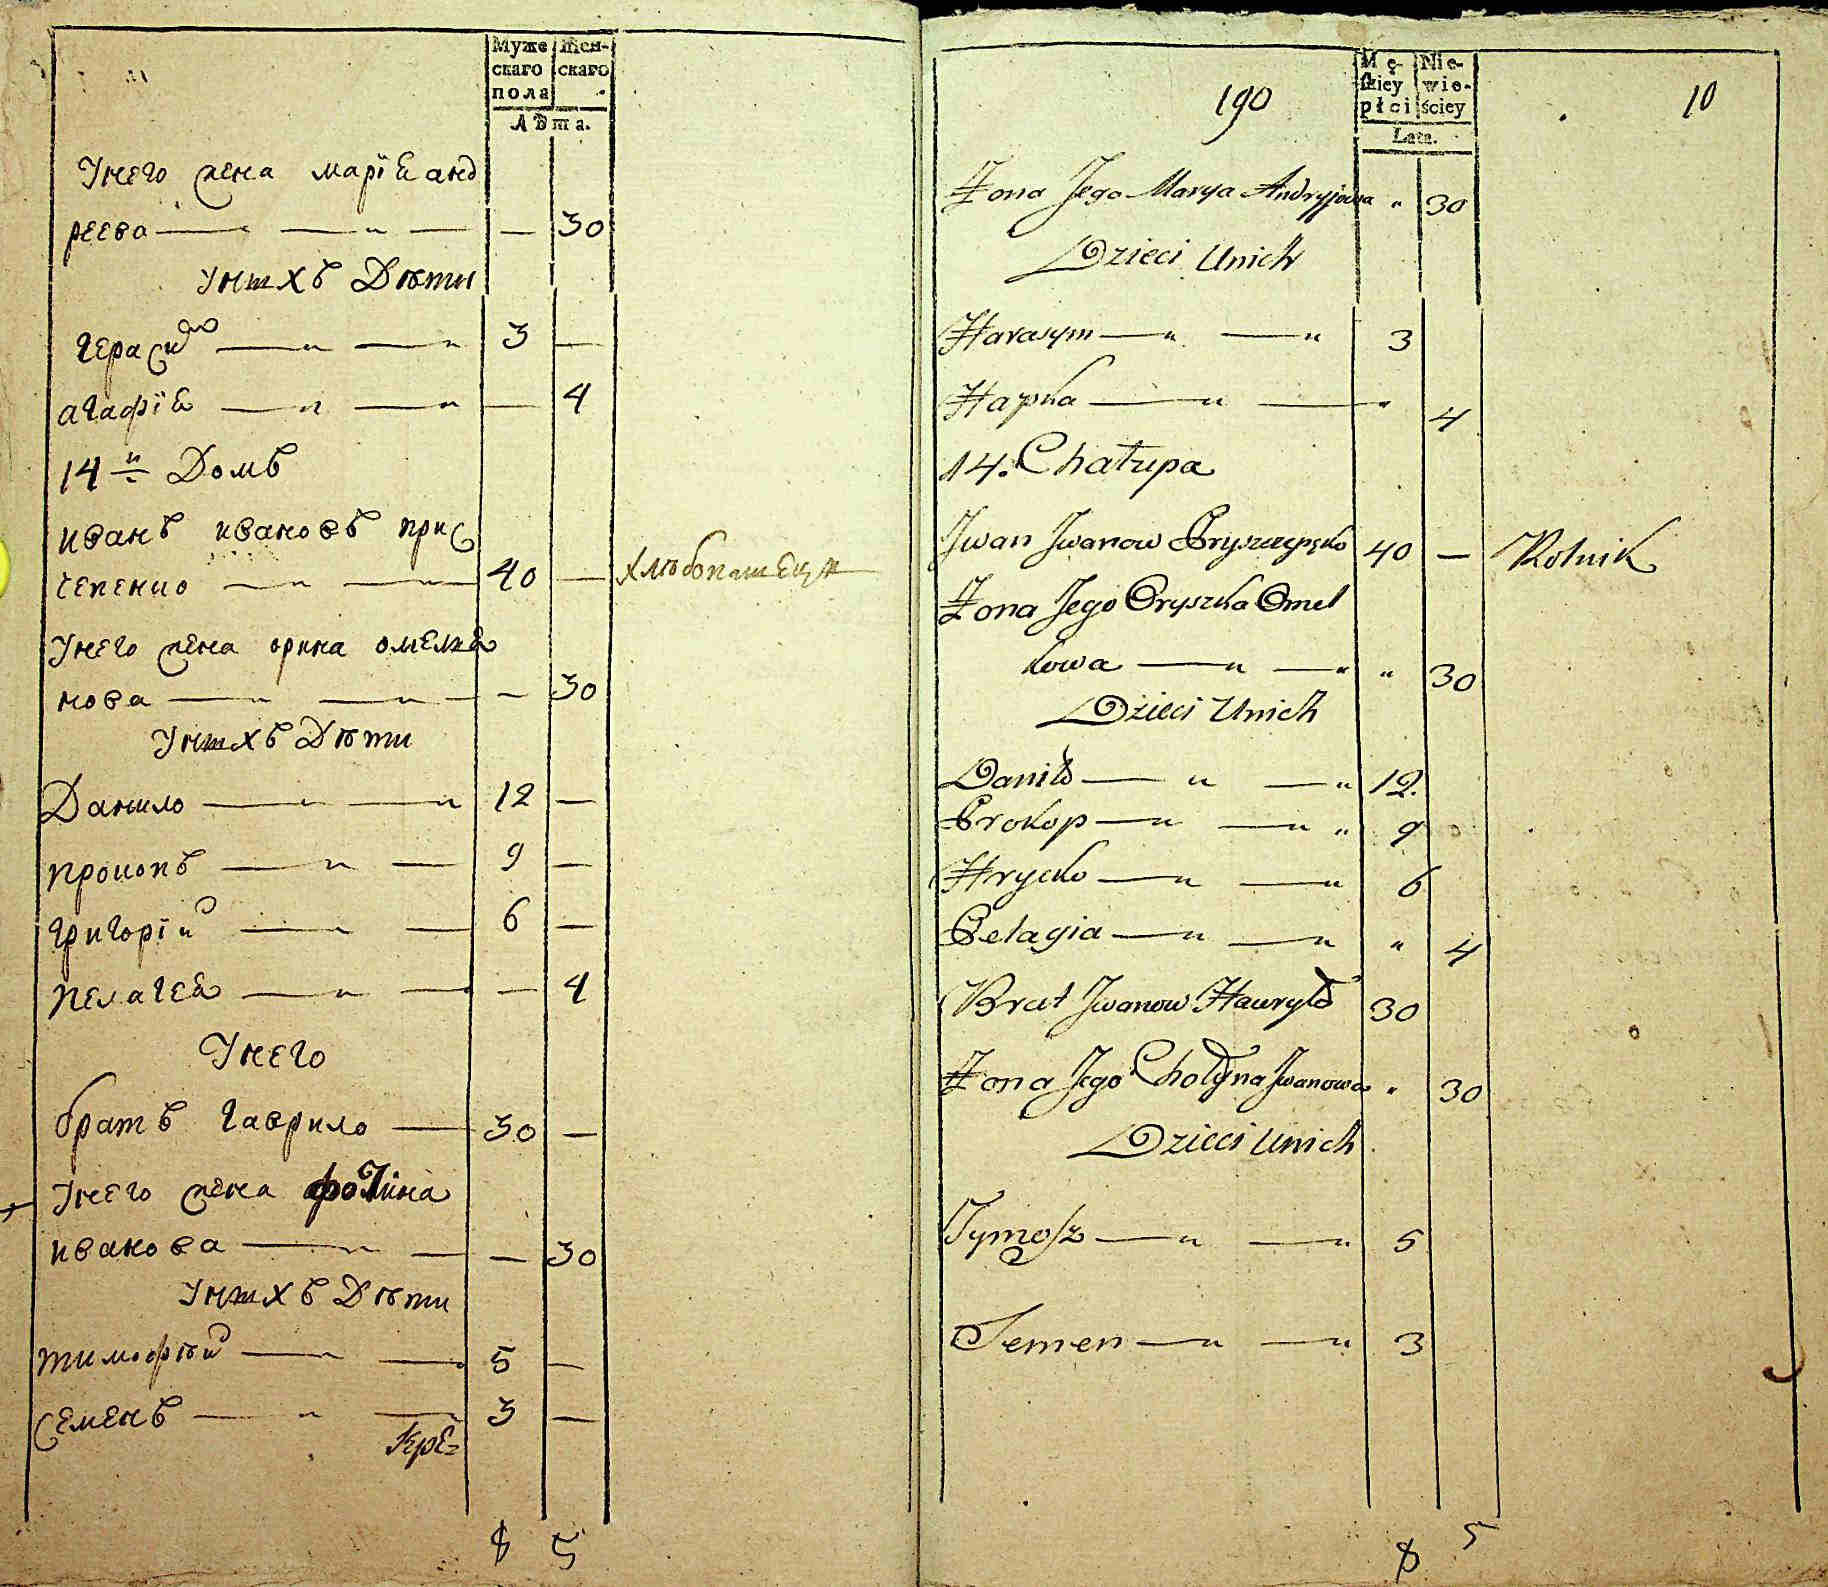 Муже Жен-
скаго скаго
пола
Лѣта.
Унего жена марія анд
реева — 30
Унихъ Дѣти
герасим 3 —
агафія — 4
14й Домъ
иванъ ивановъ прис
чепенко 40 — хлѣбопашецъ
Унего жена орина омелья
нова — 30
Унихъ Дѣти
Данило 12 —
прокопъ 9 —
григорій 6 —
пелагея — 4
Унего
братъ гаврило 30 —
Унего жена фотина
иванова — 30
Унихъ Дѣти
тимофѣй 5 —
семенъ 3 —
Кре=
8 5
190 10
Mę- Nie-
skiey wie-
płci ściey
Lata.
Żona Jego Marya Andryjowa " 30
Dzieci Unich
Harasym 3
Hapka " 4
14. Chałupa
Jwan Jwanow Pryszczepęko 40 — Rolnik
Żona Jego Oryszka Omel
kowa " 30
Dzieci Unich
Daniło 12.
Prokop 9
Hrycko 6
Pelagia " 4
Brat Jwanow Hawryło 30
Żona Jego Chotyna Jwanowa " 30
Dzieci Unich
Tymosz 5
Semen 3
8 5